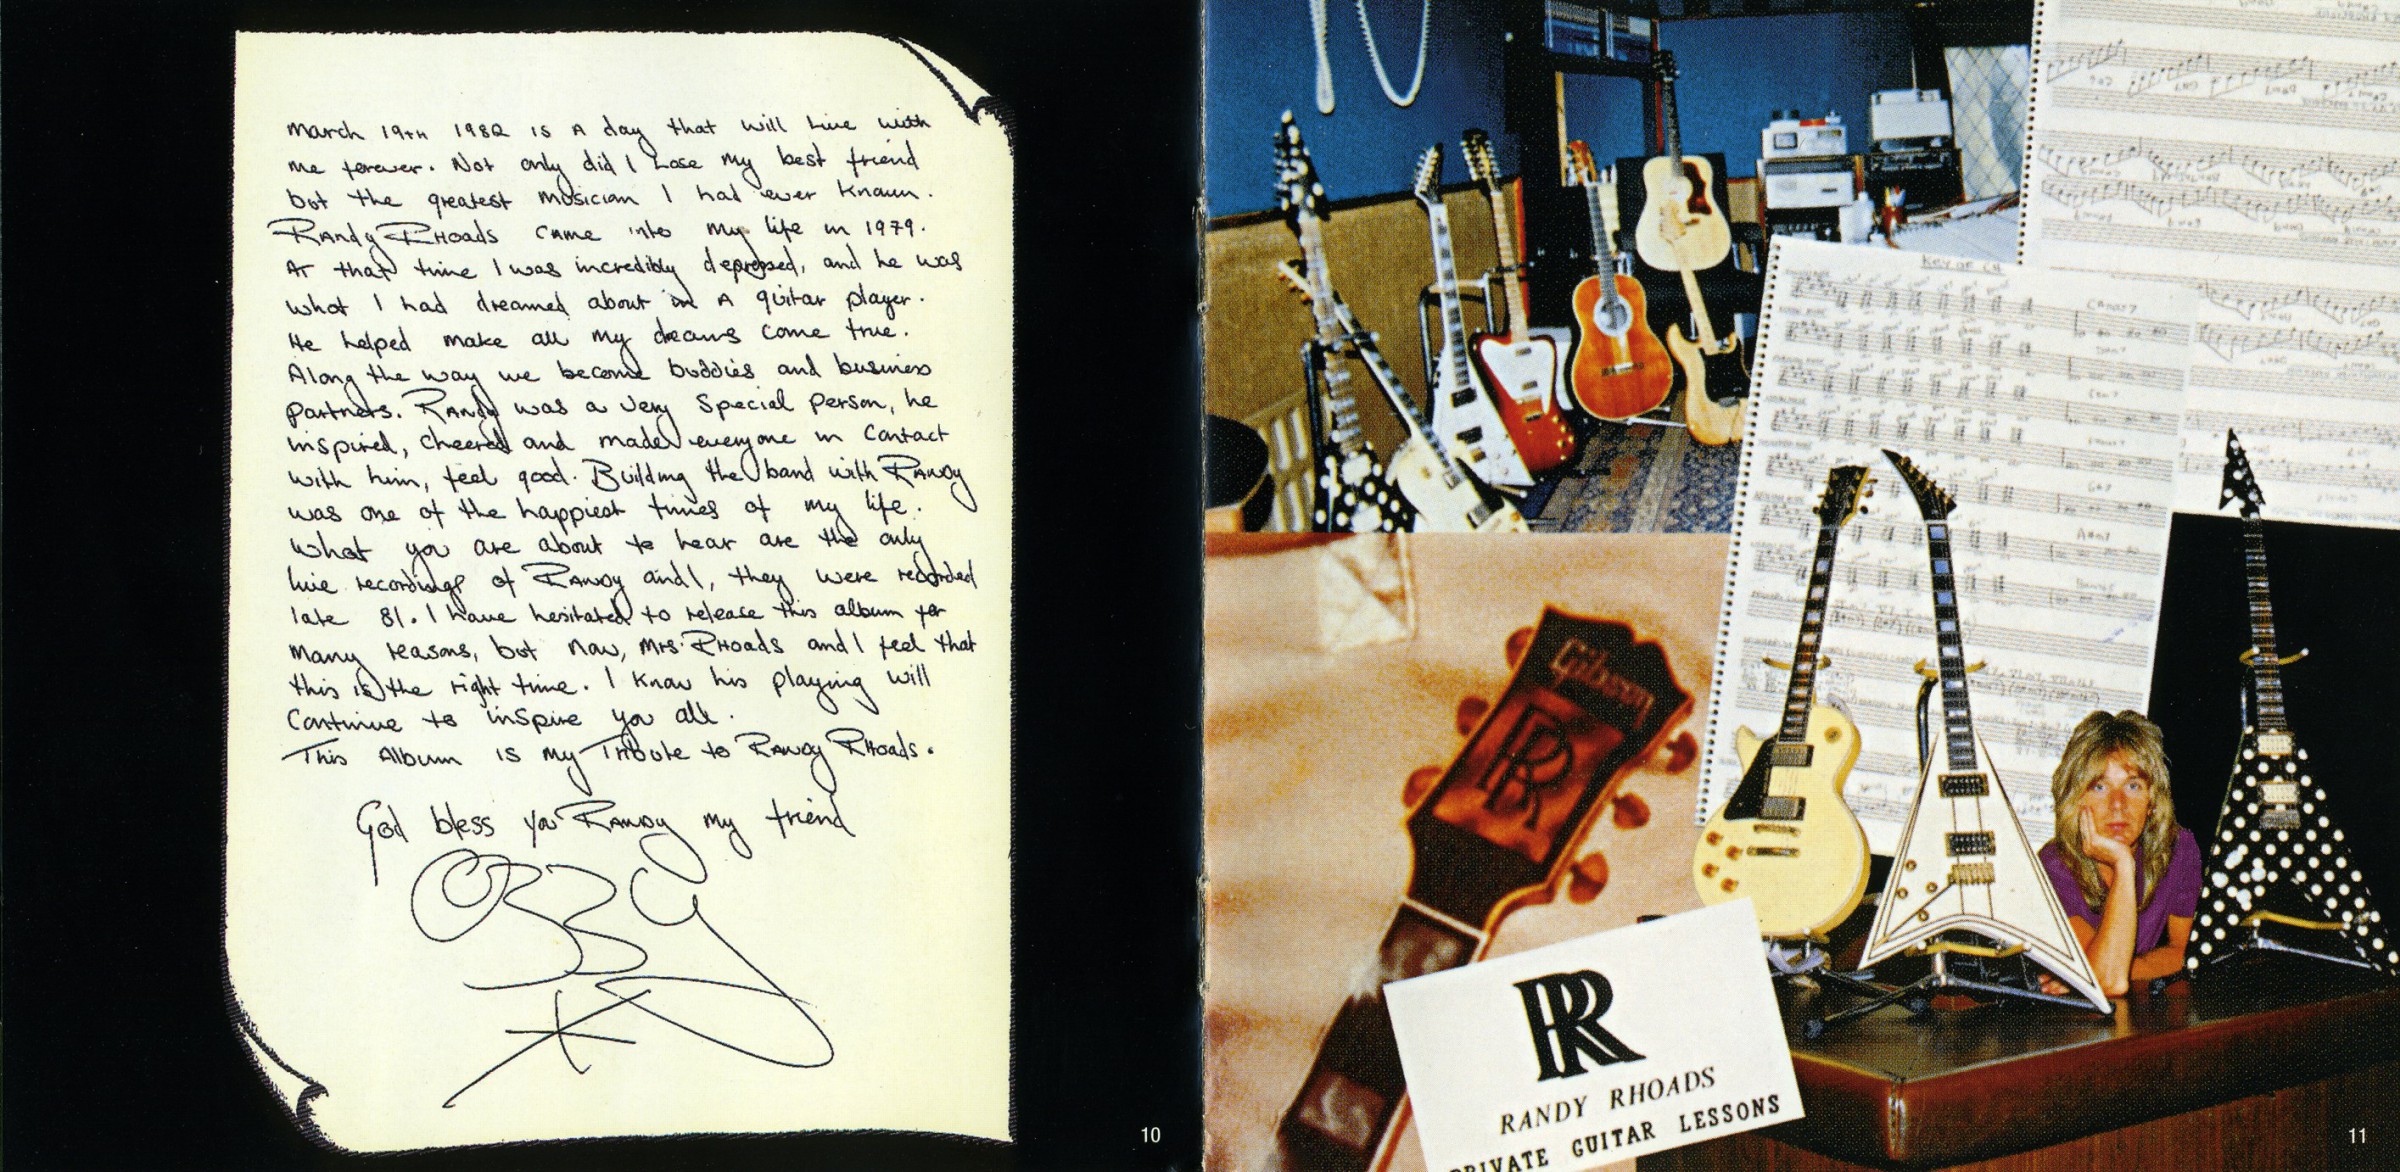 March 19th 1982 is a day that will live with
me forever. Not only did I lose my best friend
but the greatest musician I had ever known.
Randy Rhoads came into my life in 1979.
At that time I was incredibly depressed, and he was
what I had dreamed about in a guitar player.
He helped make all my dreams come true.
Along the way we become buddies and business
partners. Randy was a very special person, he
inspired, cheered and made everyone in contact
with him, feel good. Building the band with Randy
was one of the happiest times of my life.
What you are about to hear are the only
live recordings of Randy and I, they were recorded
late 81. I have hesitated to release this album for
many reasons, but now, Mrs. Rhoads and I feel that
this is the right time. I know his playing will
continue to inspire you all.
This Album is my Tribute to Randy Rhoads.
God bless you Randy my friend
Ozzy
10
Key of C#
Gibson
RR
RR
RANDY RHOADS
PRIVATE GUITAR LESSONS
11